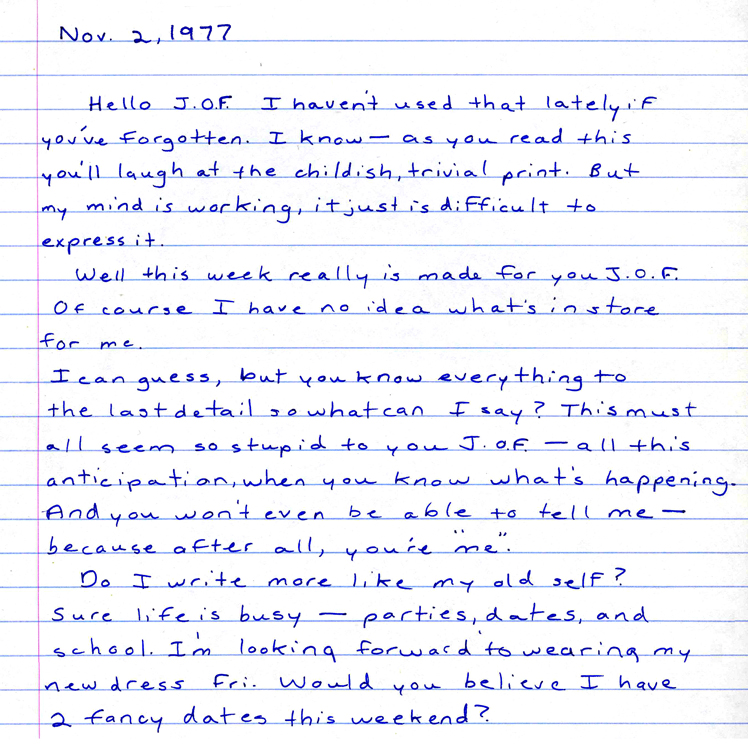 Nov. 2, 1977
Hello J.O.F. I haven't used that lately, if
you've forgotten. I know — as you read this
you'll laugh at the childish, trivial print. But
my mind is working, it just is difficult to
express it.
Well this week really is made for you J.O.F.
Of course I have no idea what's in store
for me.
I can guess, but you know everything to
the last detail so what can I say? This must
all seem so stupid to you J.O.F. — all this
anticipation, when you know what's happening.
And you won't even be able to tell me —
because after all, you're "me".
Do I write more like my old self?
Sure life is busy — parties, dates, and
school. I'm looking forward to wearing my
new dress Fri. Would you believe I have
2 fancy dates this weekend?